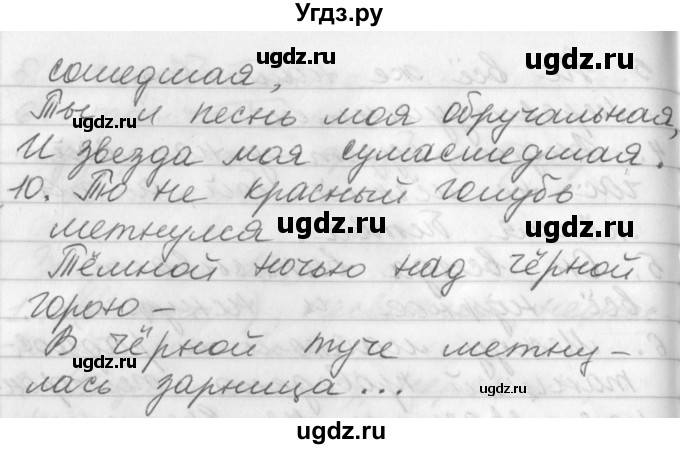 Угдз.ру
ugdz.ru ugdz.ru
сошедшая,
Ты и песнь моя обручальная,
ugdz.ru
И звезда моя сумасшедшая.
ugdz.ru
10. То не красный голубь
ugdz.ru
метнулся
ugdz.ru
Тёмной ночью над чёрной
горою –
ugdz.ru
В чёрной туче метну –
ugdz.ru
лась зарница...
ugdz.ru
ugdz.ru